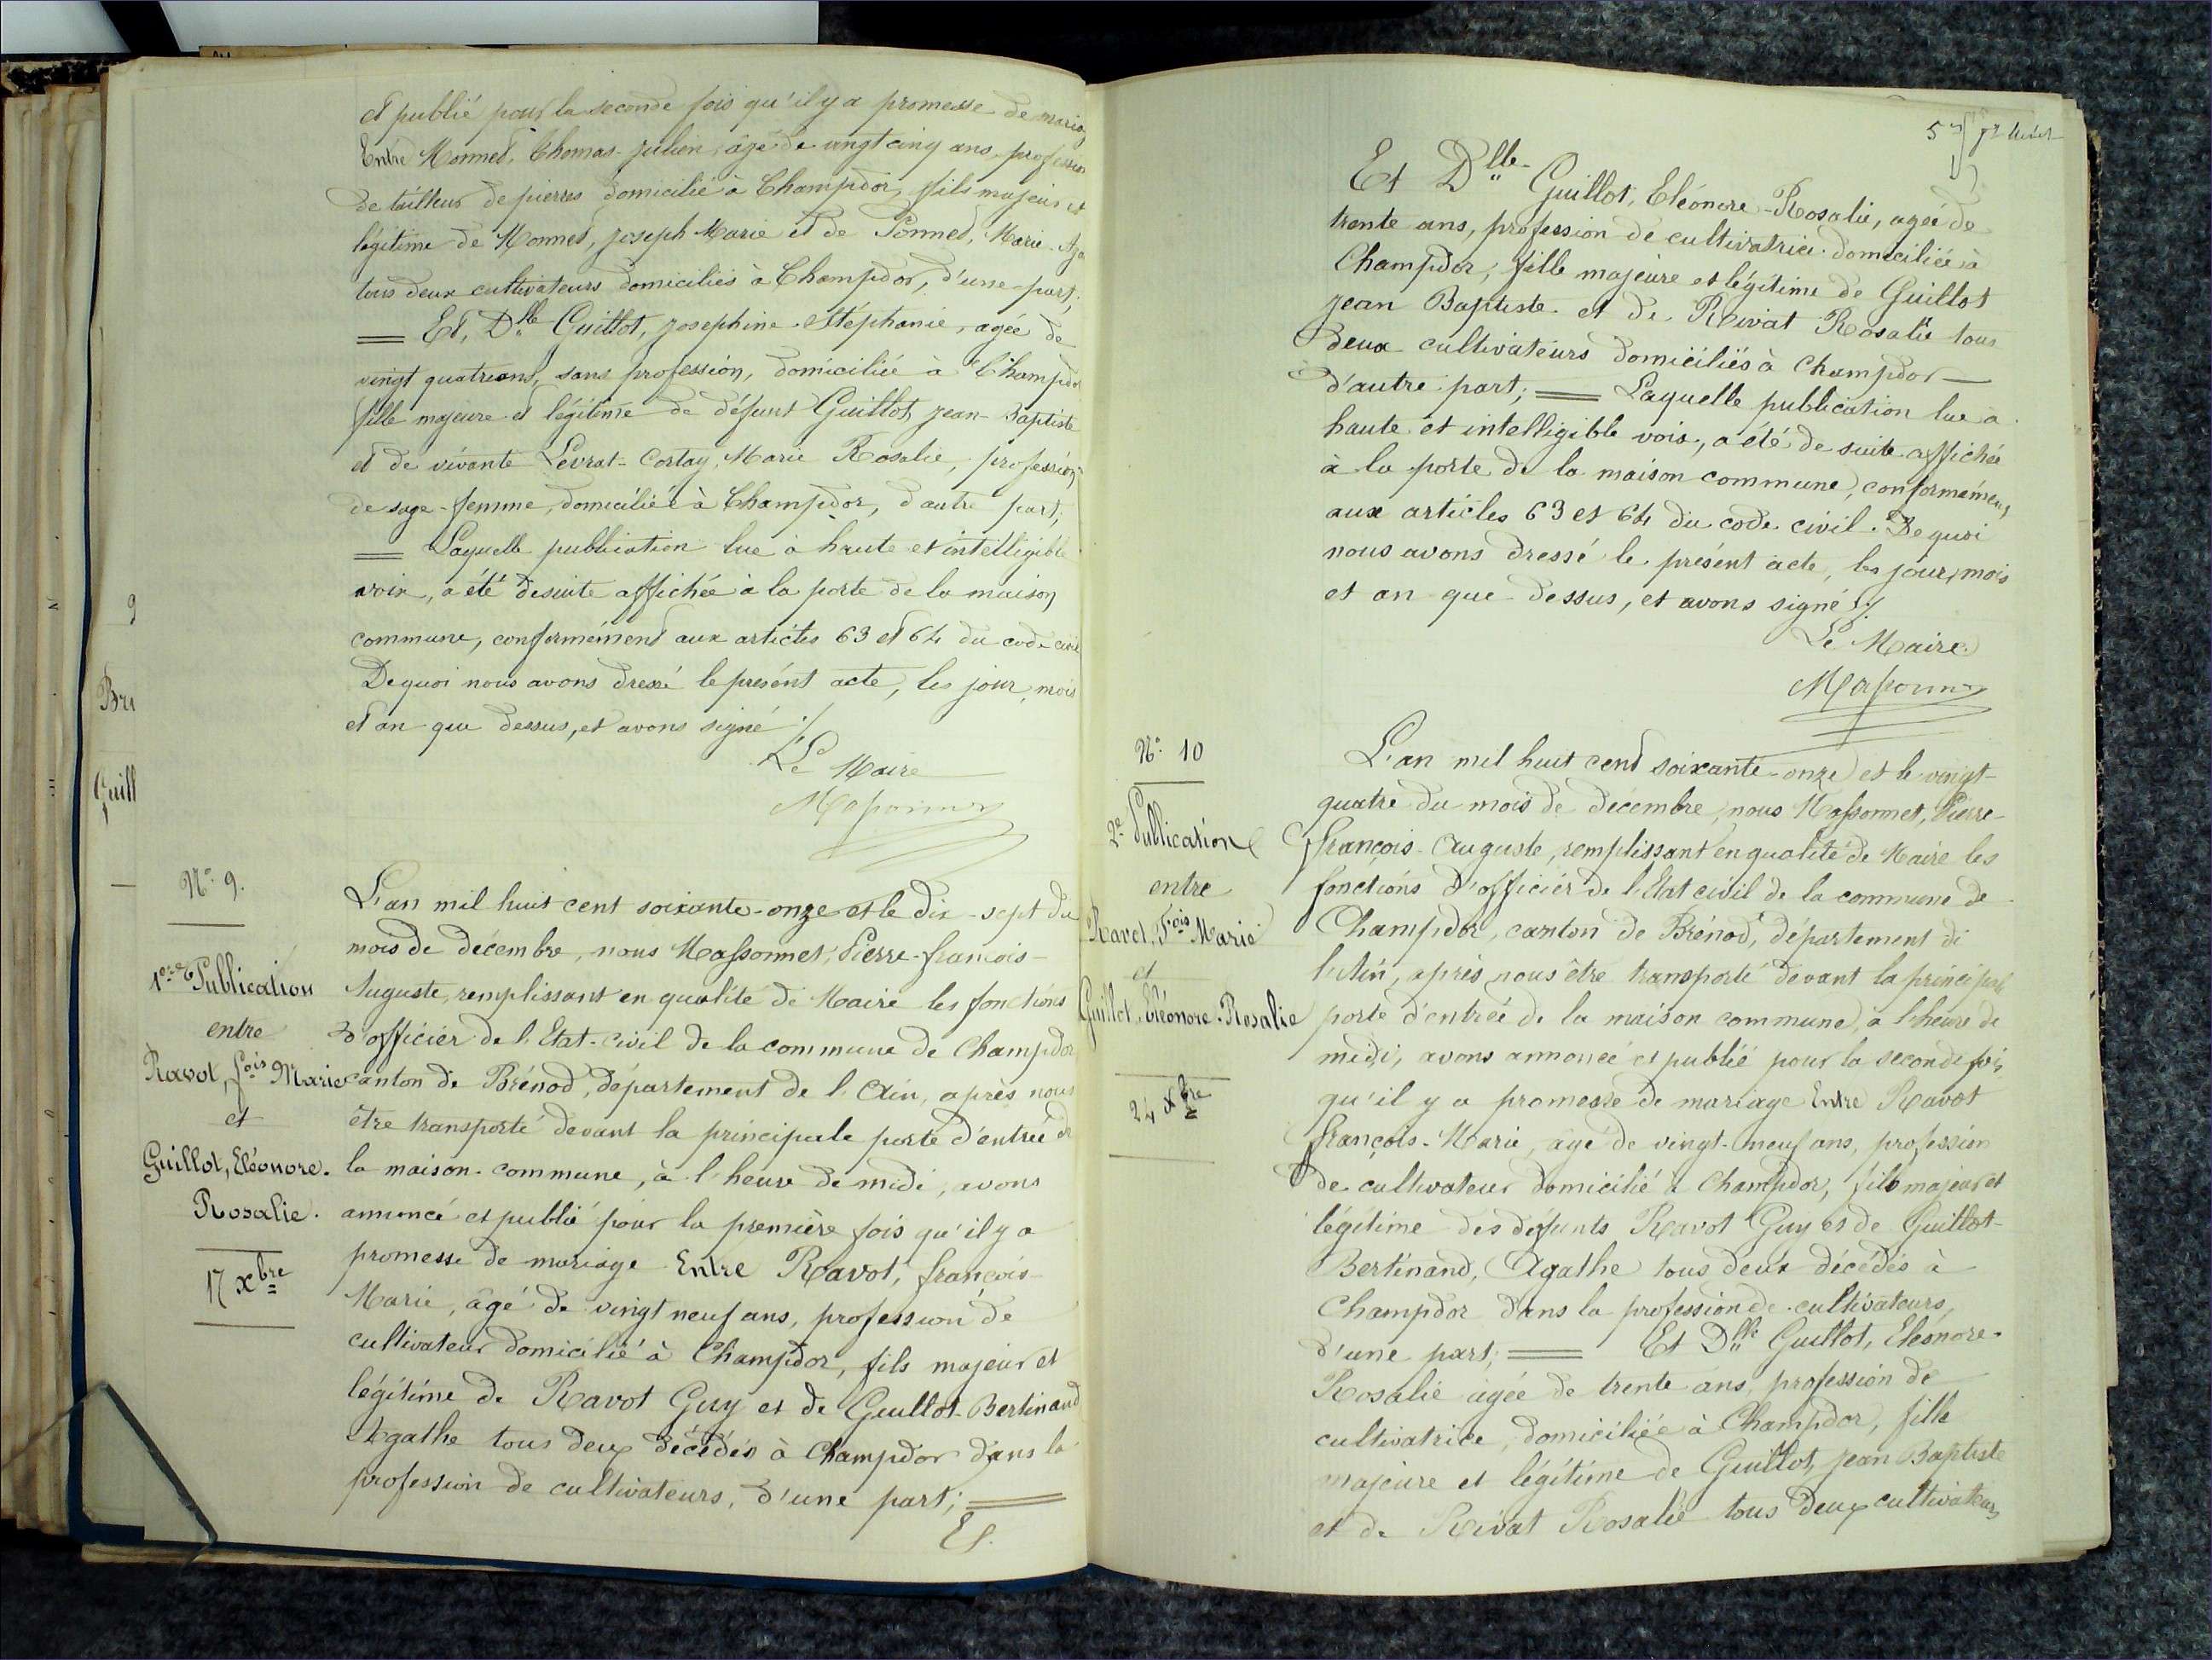 et publié pour la seconde fois qu'il y a promesse de mariag
Entre Monnet, Thomas-Julien, âgé de vingt cinq ans, profession
de tailleur de pierres domicilié à Champdor, fils majeur et
légitime de Monnet, Joseph Marie et de Ponnet, Marie-Aga
tous deux cultivateurs domiciliés à Champdor, d'une part;
= Et, Dlle Guillot, Josephine-Stéphanie, agée de
vingt quatre ans, sans profession, domiciliée à Champdor
fille majeure et légitime de défunt Guillot, Jean-Baptiste
et de vivante Levrat-Cortay, Marie Rosalie, profession
de sage-femme, domiciliée à Champdor, d'autre part;
= Laquelle publication lue à haute et intelligible
voix, a été desuite affichée à la porte de la maison
commune, conformément aux articles 63 et 64 du code civil
De quoi nous avons dressé le présent acte, les jour, mois
et an que dessus, et avons signé ./.
Le Maire
Massonnet
9
Bru
Guill
No 9.
1ere Publication
entre
Ravot, fois Marie
et
Guillot, Eléonore.
Rosalie.
17 xbre
L'an mil huit cent soixante-onze et le dix-sept du
mois de décembre, nous Massonnet, Pierre-françois-
Auguste, remplissant en qualité de Maire les fonctions
d'officier de l'Etat-civil de la commune de Champdor
canton de Brénod, département de l'Ain, après nous
être transporté devant la principale porte d'entrée de
la maison-commune, à l'heure de midi, avons
annoncé et publié pour la première fois qu'il y a
promesse de mariage Entre Ravot, françois-
Marie, âgé de vingt neuf ans, profession de
cultivateur domicilié à Champdor, fils majeur et
légitime de Ravot Guy et de Guillot-Bertinand
Agathe tous deux décédés à Champdor dans la
profession de cultivateurs, d'une part; =
Et.
Et Dlle Guillot, Eléonore-Rosalie, agée de
trente ans, profession de cultivatrice domiciliée à
Champdor, fille majeure et légitime de Guillot
Jean Baptiste et de Rivat Rosalie tous
deux cultivateurs domiciliés à Champdor —
d'autre part; = Laquelle publication lue à
haute et intelligible voix, a été de suite affichée
à la porte de la maison commune, conformément
aux articles 63 et 64 du code civil. De quoi
nous avons dressé le présent acte, les jour, mois
et an que dessus, et avons signé ./.
Le Maire
Massonnet
No 10
2e Publication
entre
Ravot, Fois Marie
et
Guillot, Eléonore-Rosalie
24 xbre
L'an mil huit cent soixante-onze et le vingt-
quatre du mois de décembre, nous Massonnet, Pierre-
françois-Auguste, remplissant en qualité de Maire les
fonctions d'officier de l'Etat civil de la commune de
Champdor, canton de Brénod, département de
l'Ain, après nous être transporté devant la principale
porte d'entrée de la maison commune, à l'heure de
midi, avons annoncé et publié pour la seconde fois
qu'il y a promesse de mariage Entre Ravot
françois-Marie, âgé de vingt-neuf ans, profession
de cultivateur domicilié à Champdor, fils majeur et
légitime des défunts Ravot Guy et de Guillot-
Bertinand, Agathe tous deux décédés à
Champdor dans la profession de cultivateurs,
d'une part; = Et Dlle Guillot, Eléonore-
Rosalie agée de trente ans, profession de
cultivatrice, domiciliée à Champdor, fille
majeure et légitime de Guillot, Jean Baptiste
et de Rivat Rosalie tous deux cultivateurs